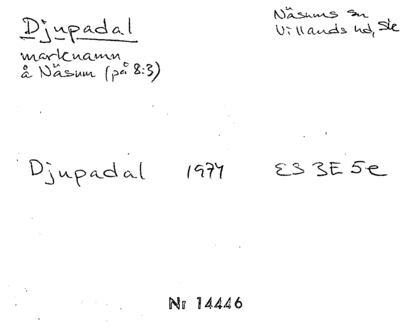 Djupadal
marknamn
å Näsum (på 8:3)
Näsums sn
Villands hd, Skå
Djupadal 1974 ES 3E 5e
Nr 14446